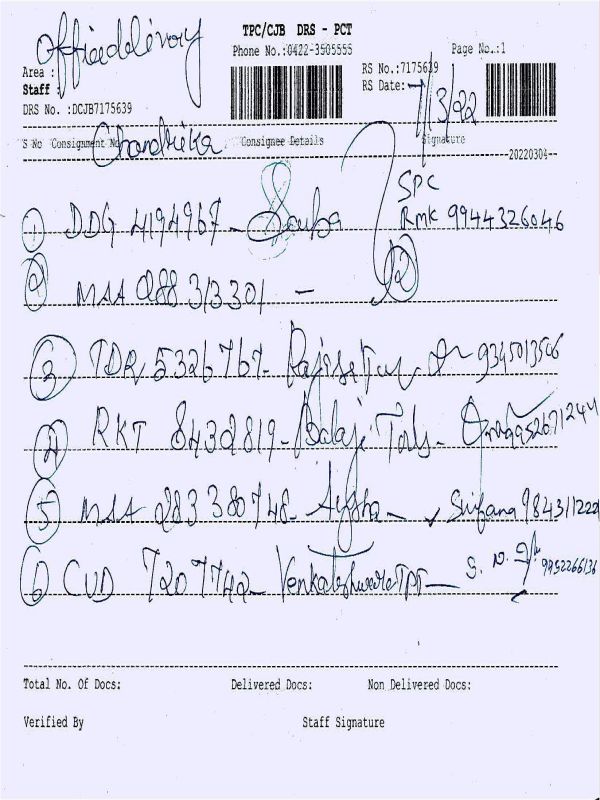 TPC/CJB DRS - PCT
Office delivery
Phone No.:0422-3505555 Page No.:1
Area : RS No.:7175639
Staff : RS Date: 7/3/22
DRS No. :DCJB7175639
Chandrika
S No Consignment No Consignee Details Signature
20220304
SPC
① DDG 4194967 - Souba RMK 9944326046
② MAA 288313301 - ②
③ TDR 5326767- 9345013506
④ RKT 8432819- Balaji Tools-
⑤ MAA 283380748- Aysha - Shifana 984311222
⑥ CUD 7207742- Venkateshwara TPT- S. N. 9952266136
Total No. Of Docs: Delivered Docs: Non Delivered Docs:
Verified By Staff Signature